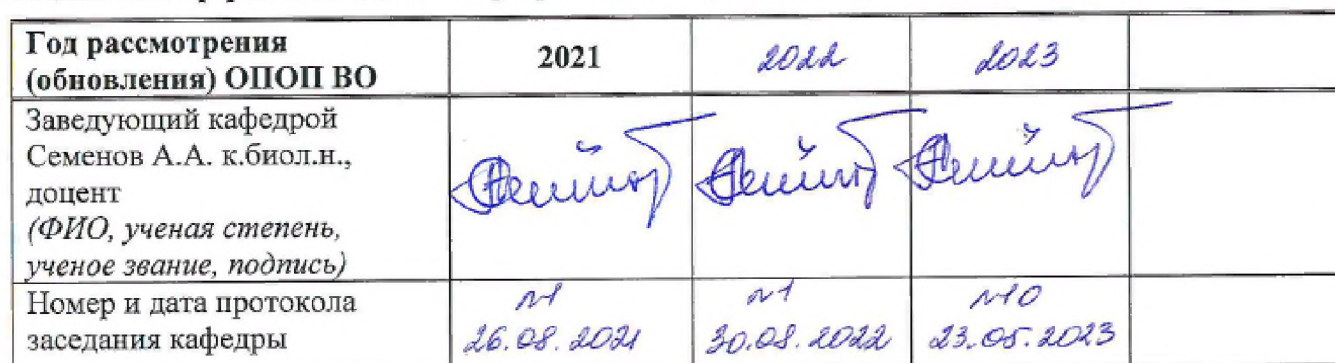 Год рассмотрения
(обновления) ОПОП ВО
2021
2022
2023
Заведующий кафедрой
Семенов А.А. к.биол.н.,
доцент
(ФИО, ученая степень,
ученое звание, подпись)
Номер и дата протокола
заседания кафедры
№1
26.08.2021
№1
30.08.2022
№10
23.05.2023